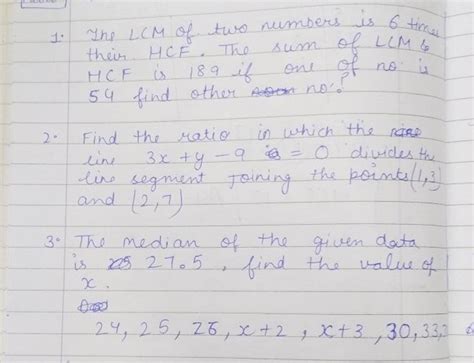 1. The LCM of two numbers is 6 times
their HCF. The sum of LCM &
HCF is 189 if one of no is
54 find other no.?
2. Find the ratio in which the
line 3x + y - 9 = 0 divides the
line segment joining the points (1,3)
and (2,7)
3. The median of the given data
is 27.5, find the value of
x.
24, 25, 26, x+2, x+3, 30, 33,